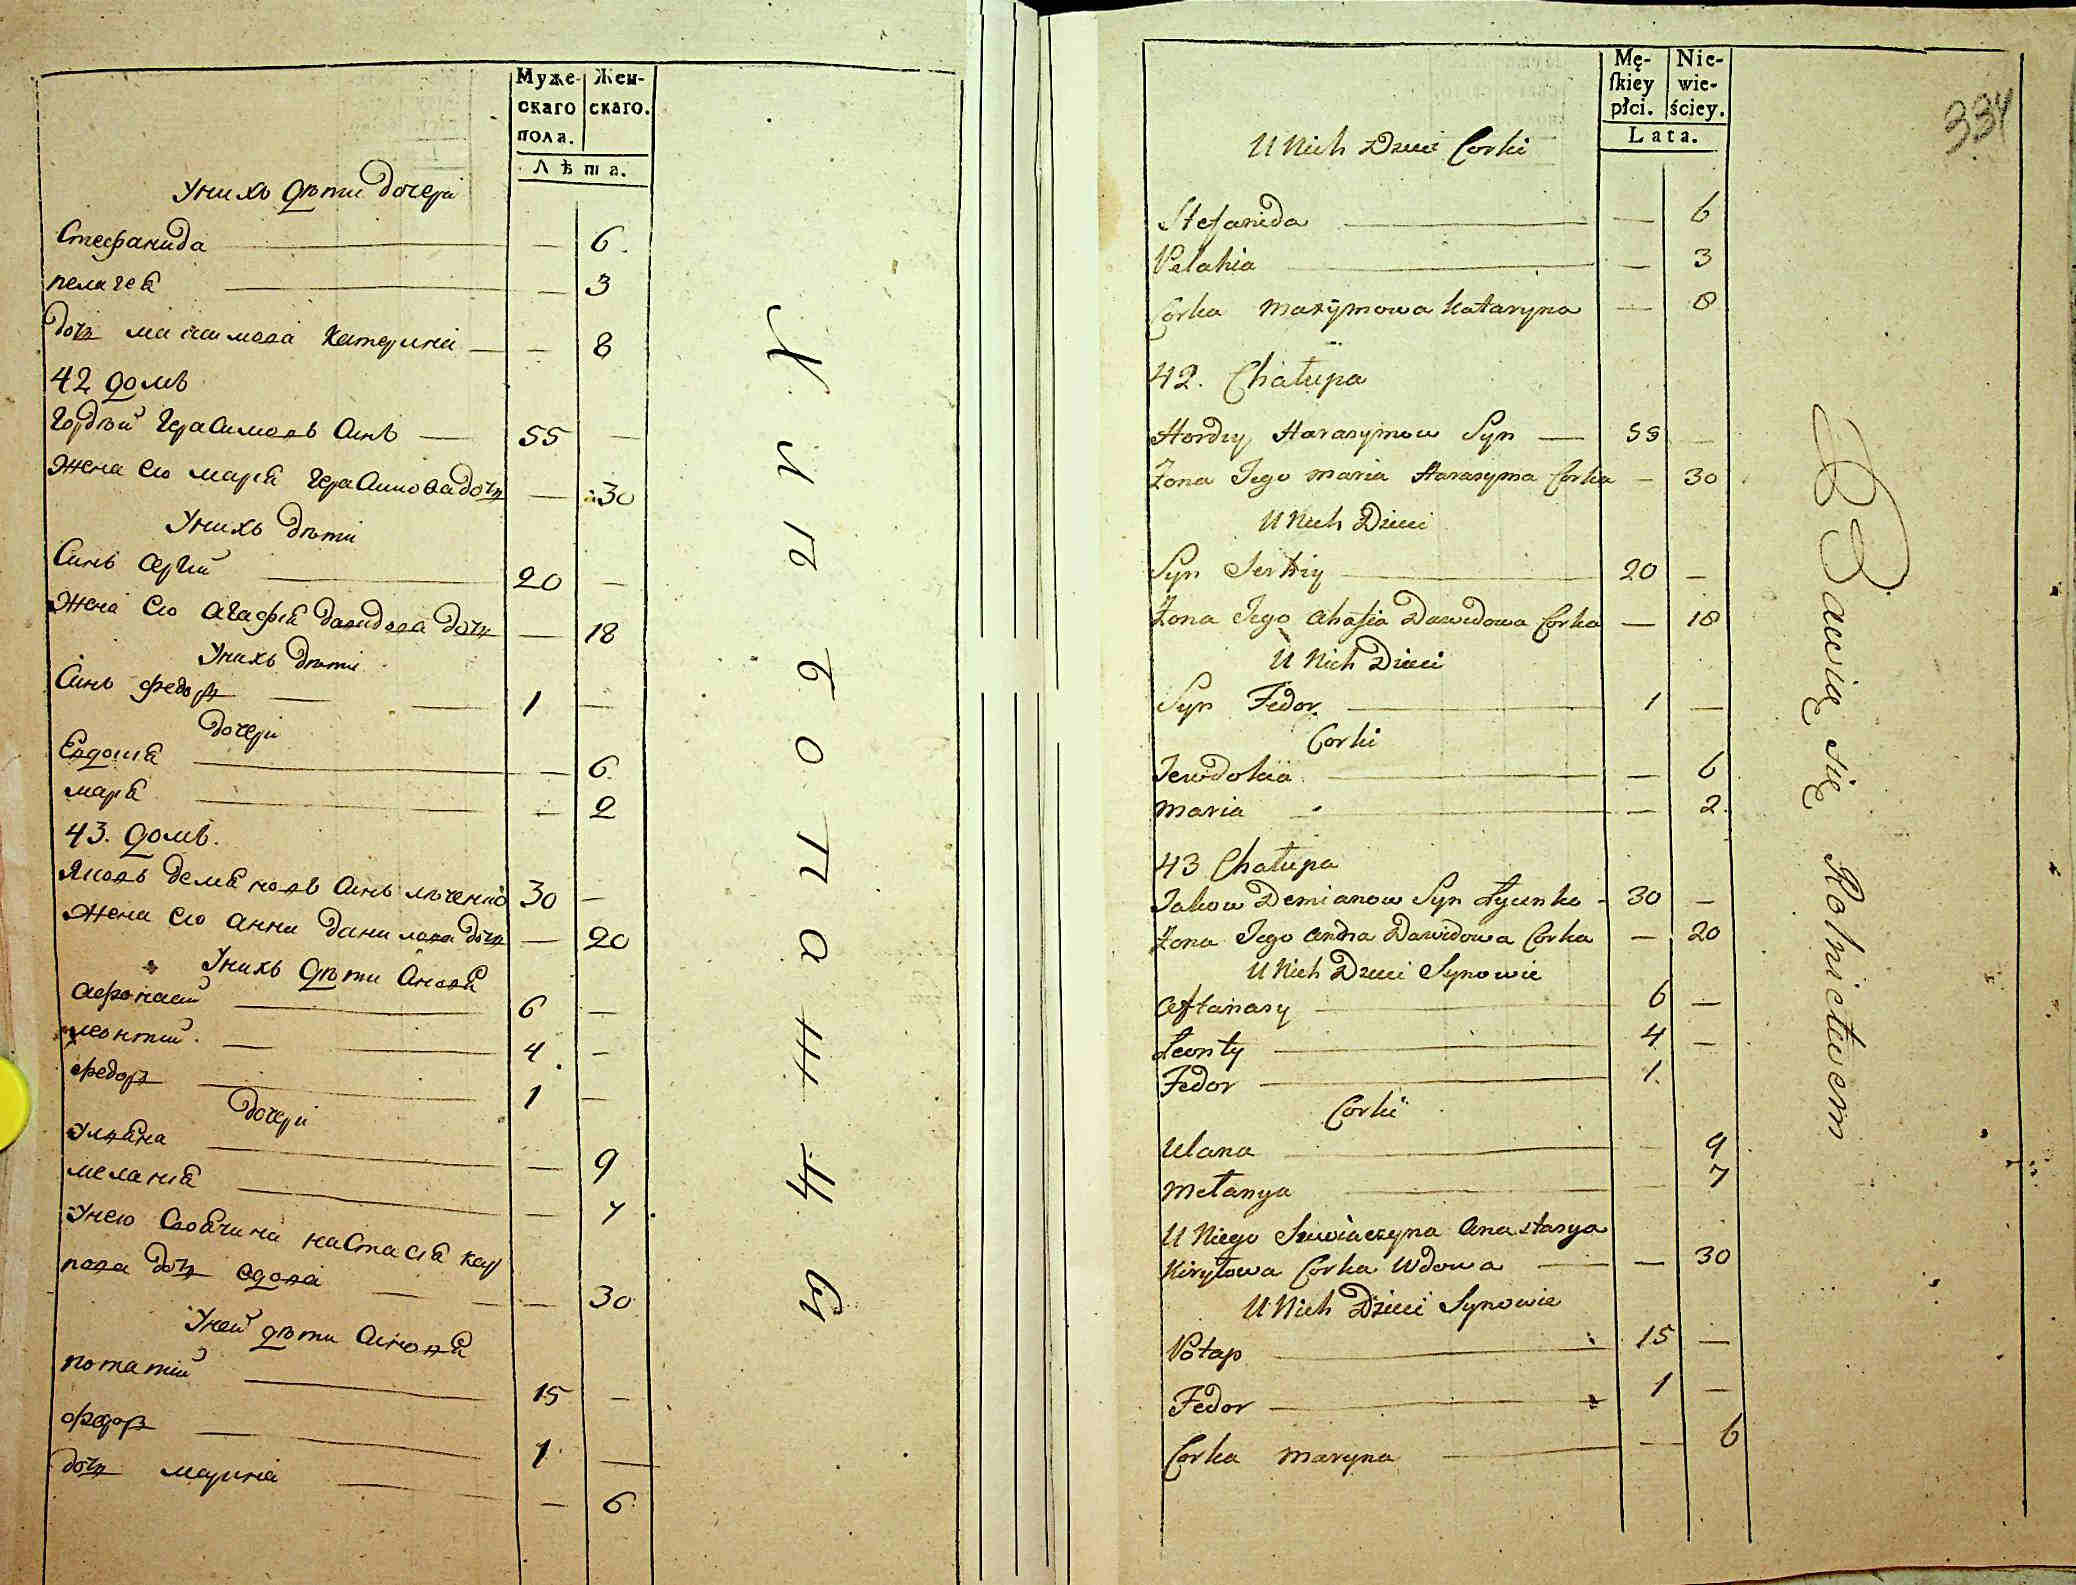 Муже-
скаго
пола.
Жен-
скаго.
Лѣта.
Унихъ дѣти дочери
Стефанида 6
пелагеѣ 3
дочъ Катерина 8
42 домъ
Гордѣй Герасимовъ Синъ 55
Жена его мариѣ Герасимова дочъ 30
Унихъ дѣти
Синъ Сергій 20
Жена его агафиѣ давидова дочъ 18
Унихъ дѣти
Синъ федоръ 1
дочери
Евдокиѣ 6
мариѣ 2
43. домъ.
Яковъ демѣновъ Синъ лученко 30
Жена его анна данилова дочъ 20
Унихъ дѣти Синовѣ
афонасий 6
леонтий 4
федоръ 1
дочери
улѣѣна 9
меланиѣ 7
Унего Своѣчина настасиѣ кар
пова дочъ вдова 30
Уней дѣти Синовѣ
потапий 15
федоръ 1
дочъ марина 6
Хлѣбопашцы
Mę-
ſkiey
płci.
Nie-
wie-
ściey.
Lata.
334
U Nich Dzieci Corki
Stefanida 6
Pelahia 3
Corka Maxymowa Kataryna 8
42. Chałupa
Hordiy Harasymow Syn 55
Żona Jego Maria Harasyma Corka 30
U Nich Dzieci
Syn Serhiy 20
Żona Jego Ahafia Dawidowa Corka 18
U Nich Dzieci
Syn Fedor 1
Corki
Jewdokia 6
Maria 2
43 Chałupa
Jakow Demianow Syn Łyczenko 30
Żona Jego Anna Dawidowa Corka 20
U Nich Dzieci Synowie
Aftanasy 6
Leonty 4
Fedor 1
Corki
Ulana 9
Mełanya 7
U Niego Szwiaczyna Anastasya
Kiryłowa Corka Wdowa 30
U Nich Dzieci Synowie
Potap 15
Fedor 1
Corka Maryna 6
Bawią się Rolnictwem